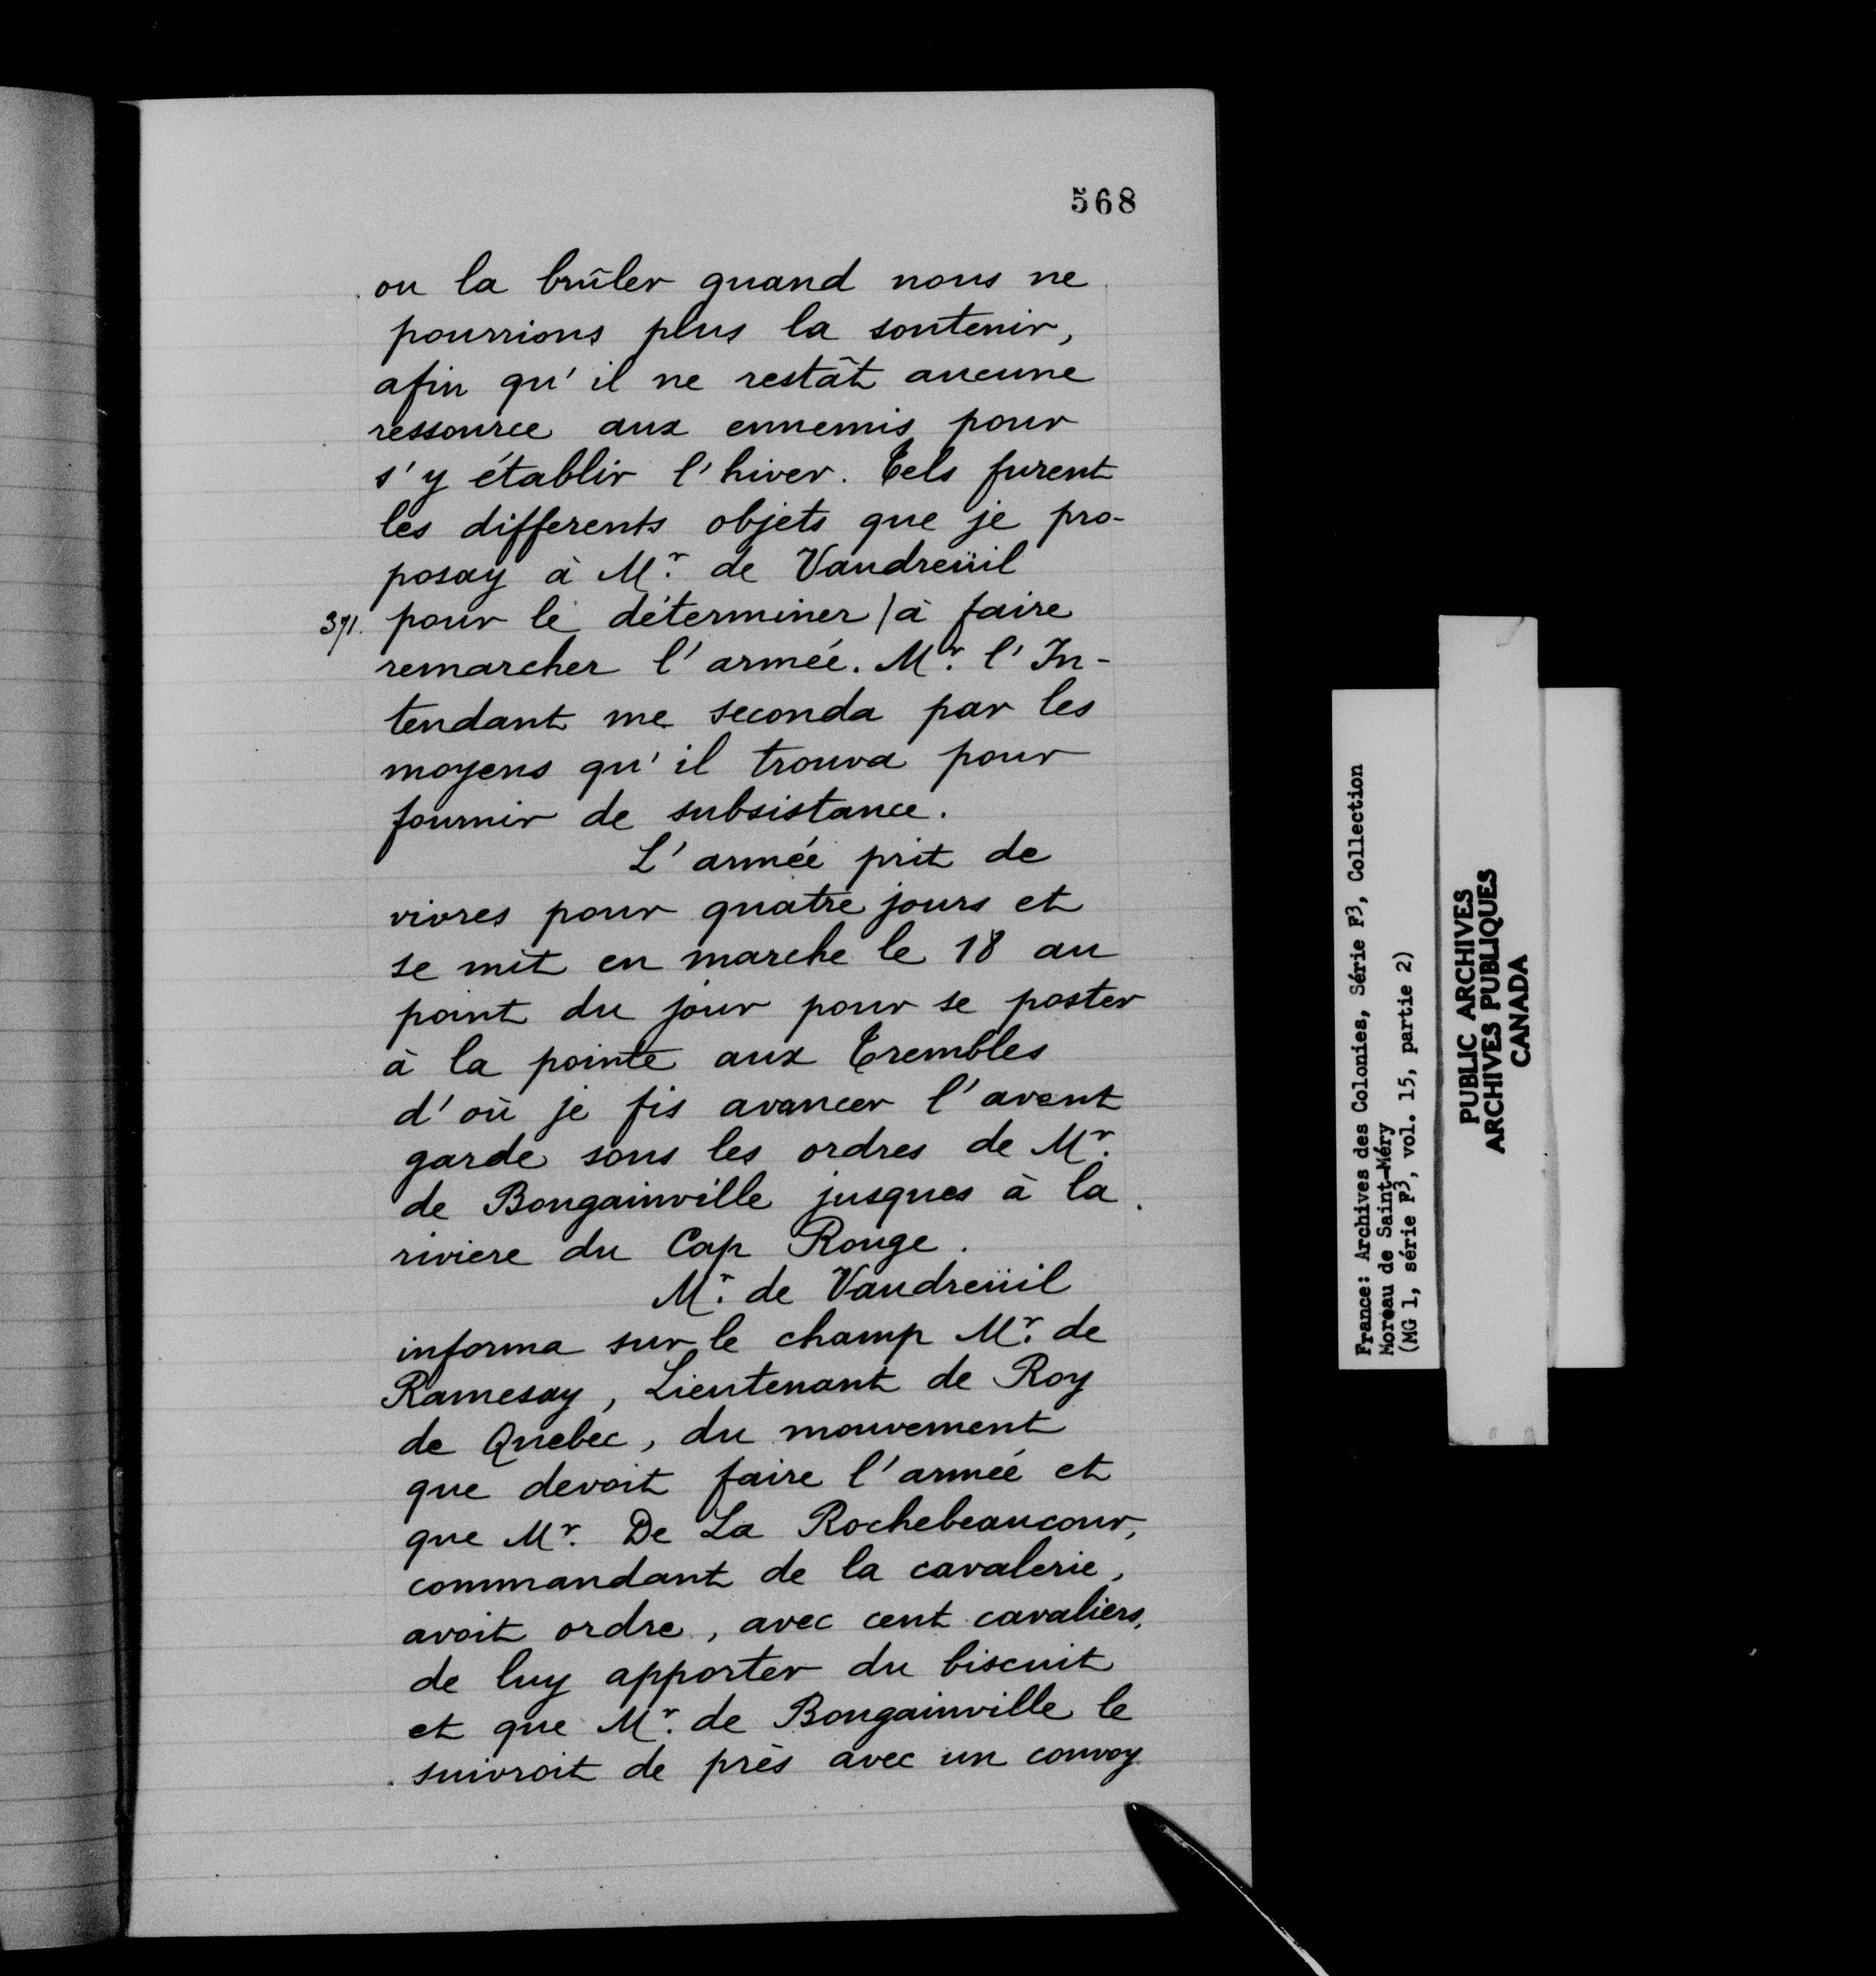 568
ou la brûler quand nous ne
pourrions plus la soutenir,
afin qu'il ne restât aucune
ressource aux ennemis pour
s'y établir l'hiver. Tels furent
les differents objets que je pro-
posay à Mr. de Vaudreüil
371. pour le déterminer / à faire
remarcher l'armée. Mr. l'In-
tendant me seconda par les
moyens qu'il trouva pour
fournir de subsistance.
L'armée prit de
vivres pour quatre jours et
se mit en marche le 18 au
point du jour pour se poster
à la pointe aux Trembles
d'où je fis avancer l'avant
garde sous les ordres de Mr.
de Bougainville jusques à la
riviere du Cap Rouge.
Mr. de Vaudreüil
informa sur le champ Mr. de
Ramesay, Lieutenant de Roy
de Quebec, du mouvement
que devoit faire l'armée et
que Mr. De La Rochebeaucour,
commandant de la cavalerie,
avoit ordre, avec cent cavaliers,
de luy apporter du biscuit
et que Mr. de Bougainville le
suivroit de près avec un convoy
France: Archives des Colonies, Série F3, Collection
Moreau de Saint-Méry
(MG 1, série F3, vol. 15, partie 2)
PUBLIC ARCHIVES
ARCHIVES PUBLIQUES
CANADA